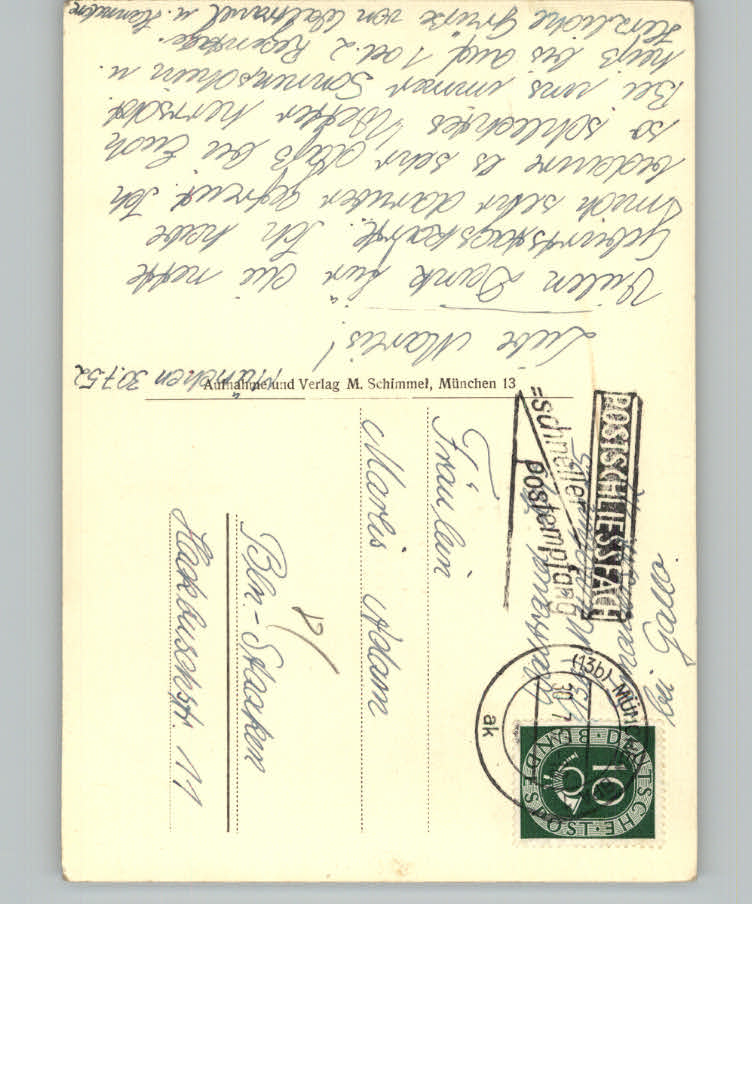 München 30.7.52
Liebe Marlis!
Vielen Dank für die nette
Geburtstagskarte. Ich habe
mich sehr darüber gefreut. Ich
bedaure es sehr daß bei Euch
so schlechtes Wetter herrscht.
Bei uns immer Sonnenschein u.
heiß bis auf 1 od. 2 Regentage.
Herzliche Grüße von Waltraud u.
Aufnahme und Verlag M. Schimmel, München 13
Fräulein
Marlis Adam
Bln.-Staaken
Hackbuschstr. 11
POSTSCHLIESSFACH
=schneller
postempfang
(13b) MÜNCHEN
30.7.
ak
DEUTSCHE BUNDESPOST
10
bei Gallo.